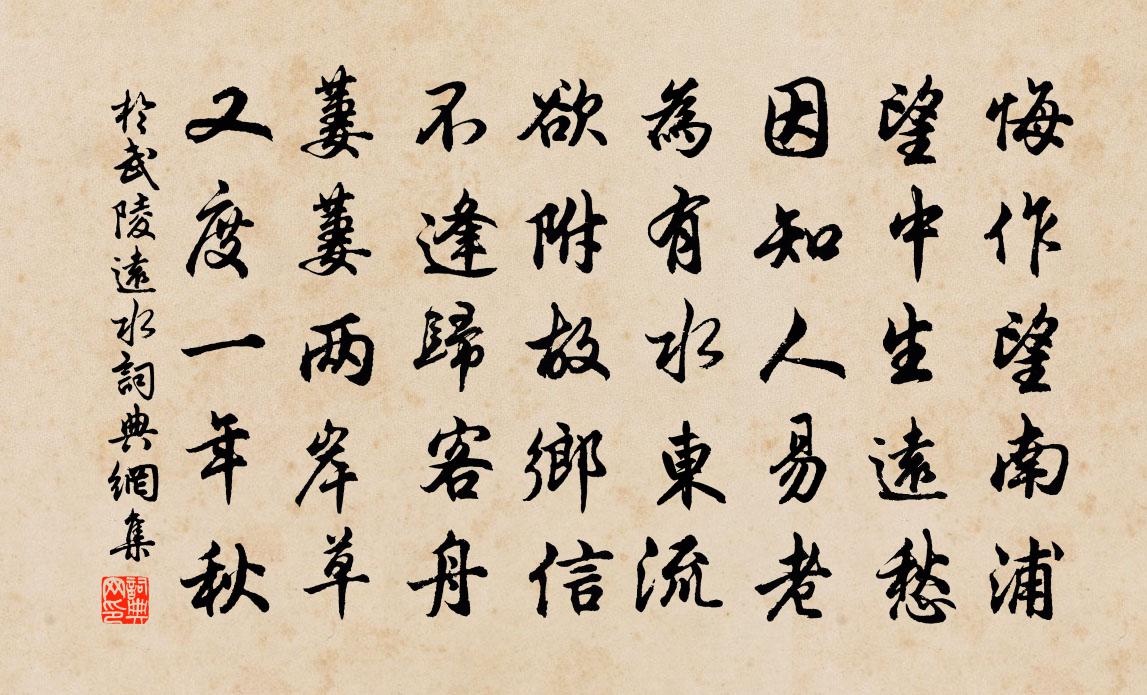 悔作望南浦
望中生遠愁
因知人易老
為有水東流
欲附故鄉信
不逢歸客舟
萋萋两岸草
又度一年秋
於武陵遠水詞典網集
詞典网印